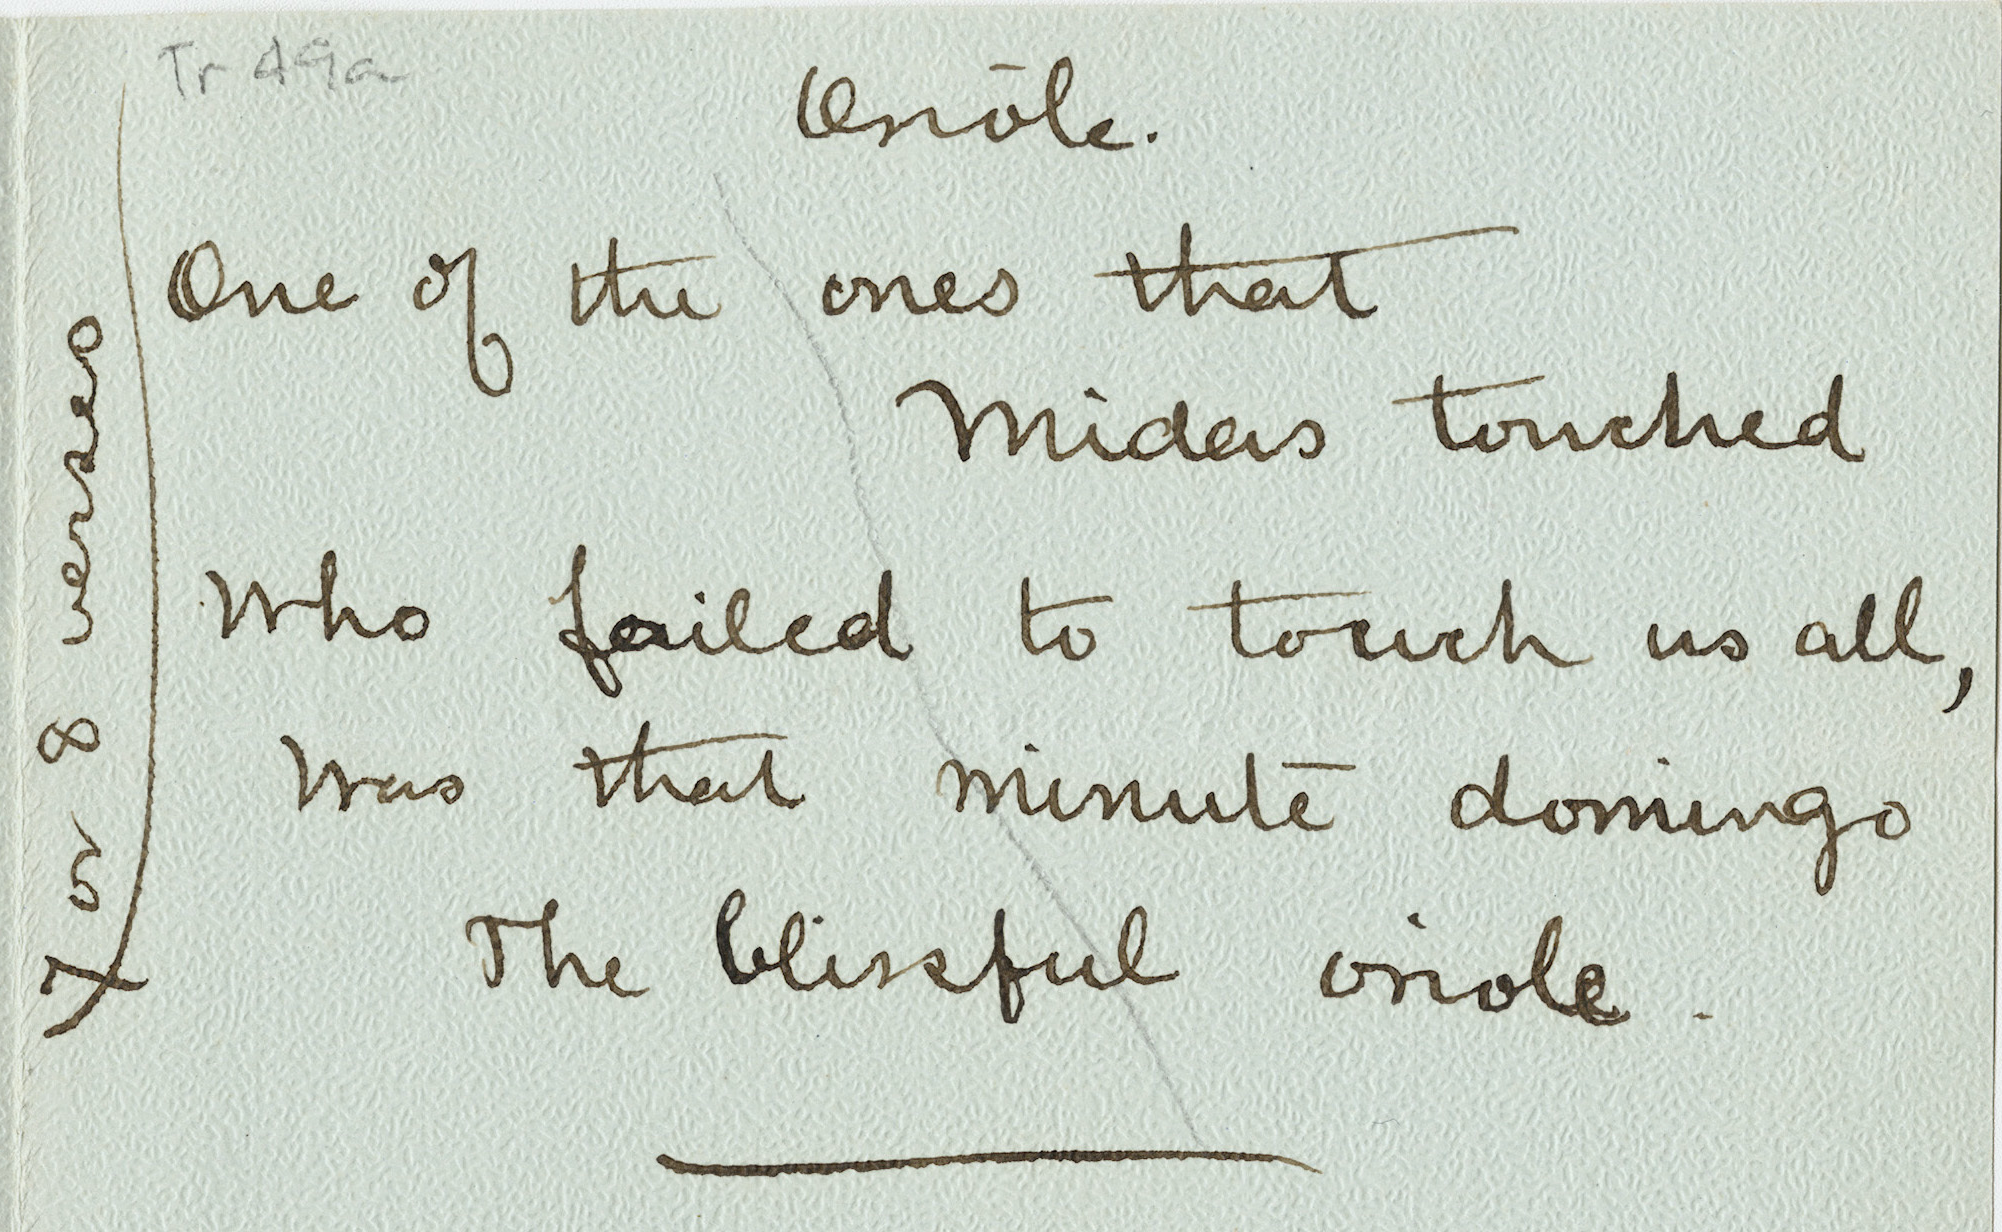 Tr 49a
Oriole.
One of the ones that
Midas touched
Who failed to touch us all,
Was that minute domingo
The blissful oriole.
7 or 8 verses